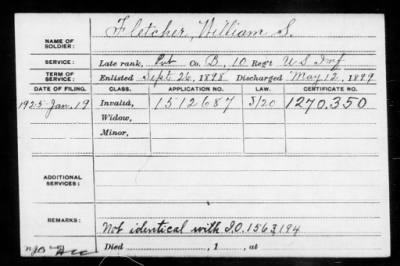 Fletcher, William S.
NAME OF SOLDIER:
SERVICE: Late rank, Pvt Co. B, 10 Reg't U S Inf
TERM OF SERVICE: Enlisted Sept. 26, 1898 Discharged May 12, 1899
DATE OF FILING. CLASS. APPLICATION NO. LAW. CERTIFICATE NO.
1925 Jan. 19 Invalid, 1512687 5/20 1270.350
Widow,
Minor,
ADDITIONAL SERVICES:
REMARKS: Not identical with I.O. 1563194
Died , 1 , at